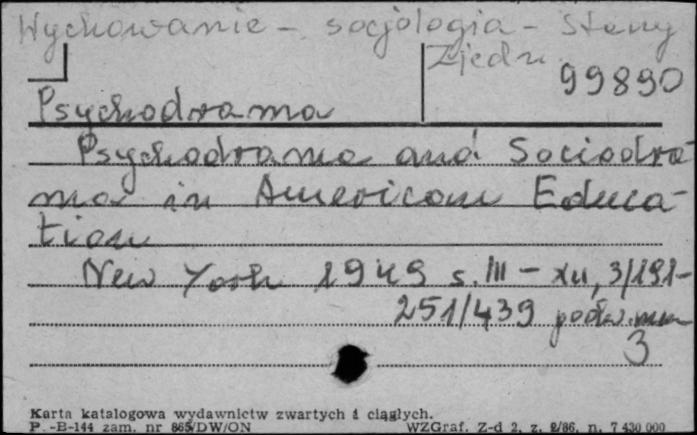 Wychowanie - socjologia - Stany
Zjedn.
99890
Psychodrama
Psychodrama and Sociodra-
ma in American Educa-
tion
New York 1949 s. III - XII, 3/191-
251/439 podw. num
3
Karta katalogowa wydawnictw zwartych i ciągłych.
P.-B-144 zam. nr 865/DW/ON WZGraf. Z-d 2, z. 2/86, n. 7 430 000